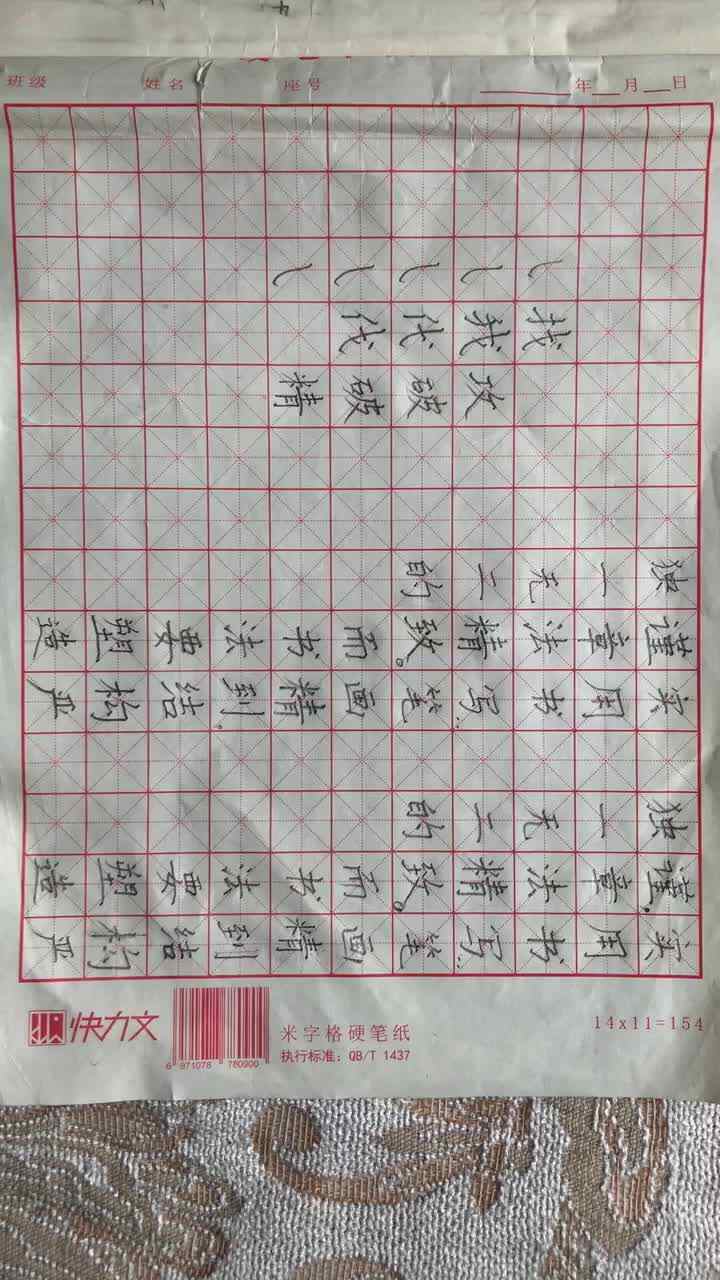 班级 姓名 座号 年 月 日
实用书写:笔画精到,结构严
谨,章法精致。而书法要塑造
独一无二的
实用书写:笔画精到,结构严
谨章法精致。而书法要塑造
独一无二的
攻破破精
找我代伐
快力文
6 971078 780900
米字格硬笔纸
执行标准：QB/T 1437
14x11=154